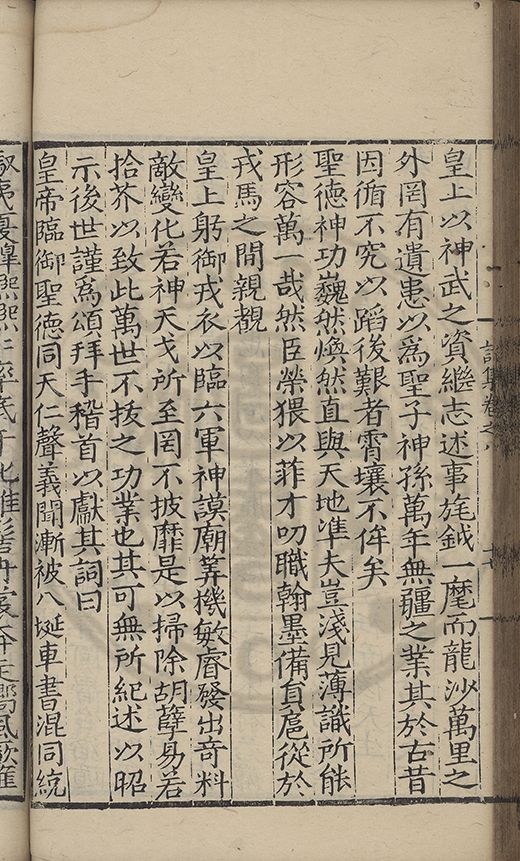 皇上以神武之資繼志述事旄鉞一麾而龍沙萬里之
外罔有遺患以爲聖子神孫萬年無疆之業其於古昔
因循不究以蹈後艱者霄壤不侔矣
聖德神功巍然煥然直與天地準夫豈淺見薄識所能
形容萬一哉然臣榮猥以菲才叨職翰墨備員扈從於
戎馬之間親覩
皇上躬御戎衣以臨六軍神謨廟筭機敏睿發出竒料
敵變化若神天戈所至罔不披靡是以掃除胡孽易若
拾芥以致此萬世不拔之功業也其可無所紀述以昭
示後世謹爲頌拜手稽首以獻其詞曰
皇帝臨御聖德同天仁聲義聞漸被八埏車書混同統